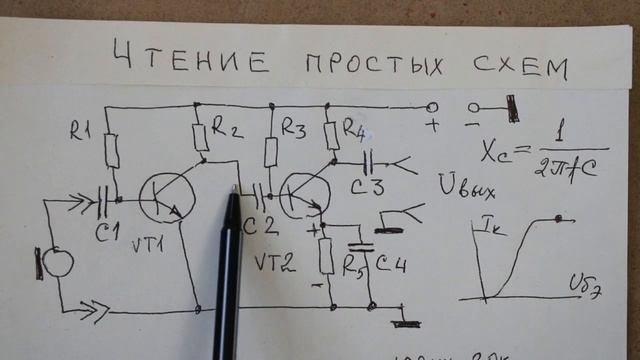 Чтение простых схем
R1
R2
R3
R4
+ -
Xc = 1
2πfC
C3
Uвых
C1
C2
VT1
VT2
+
-
R5
C4
Iк
Uбэ